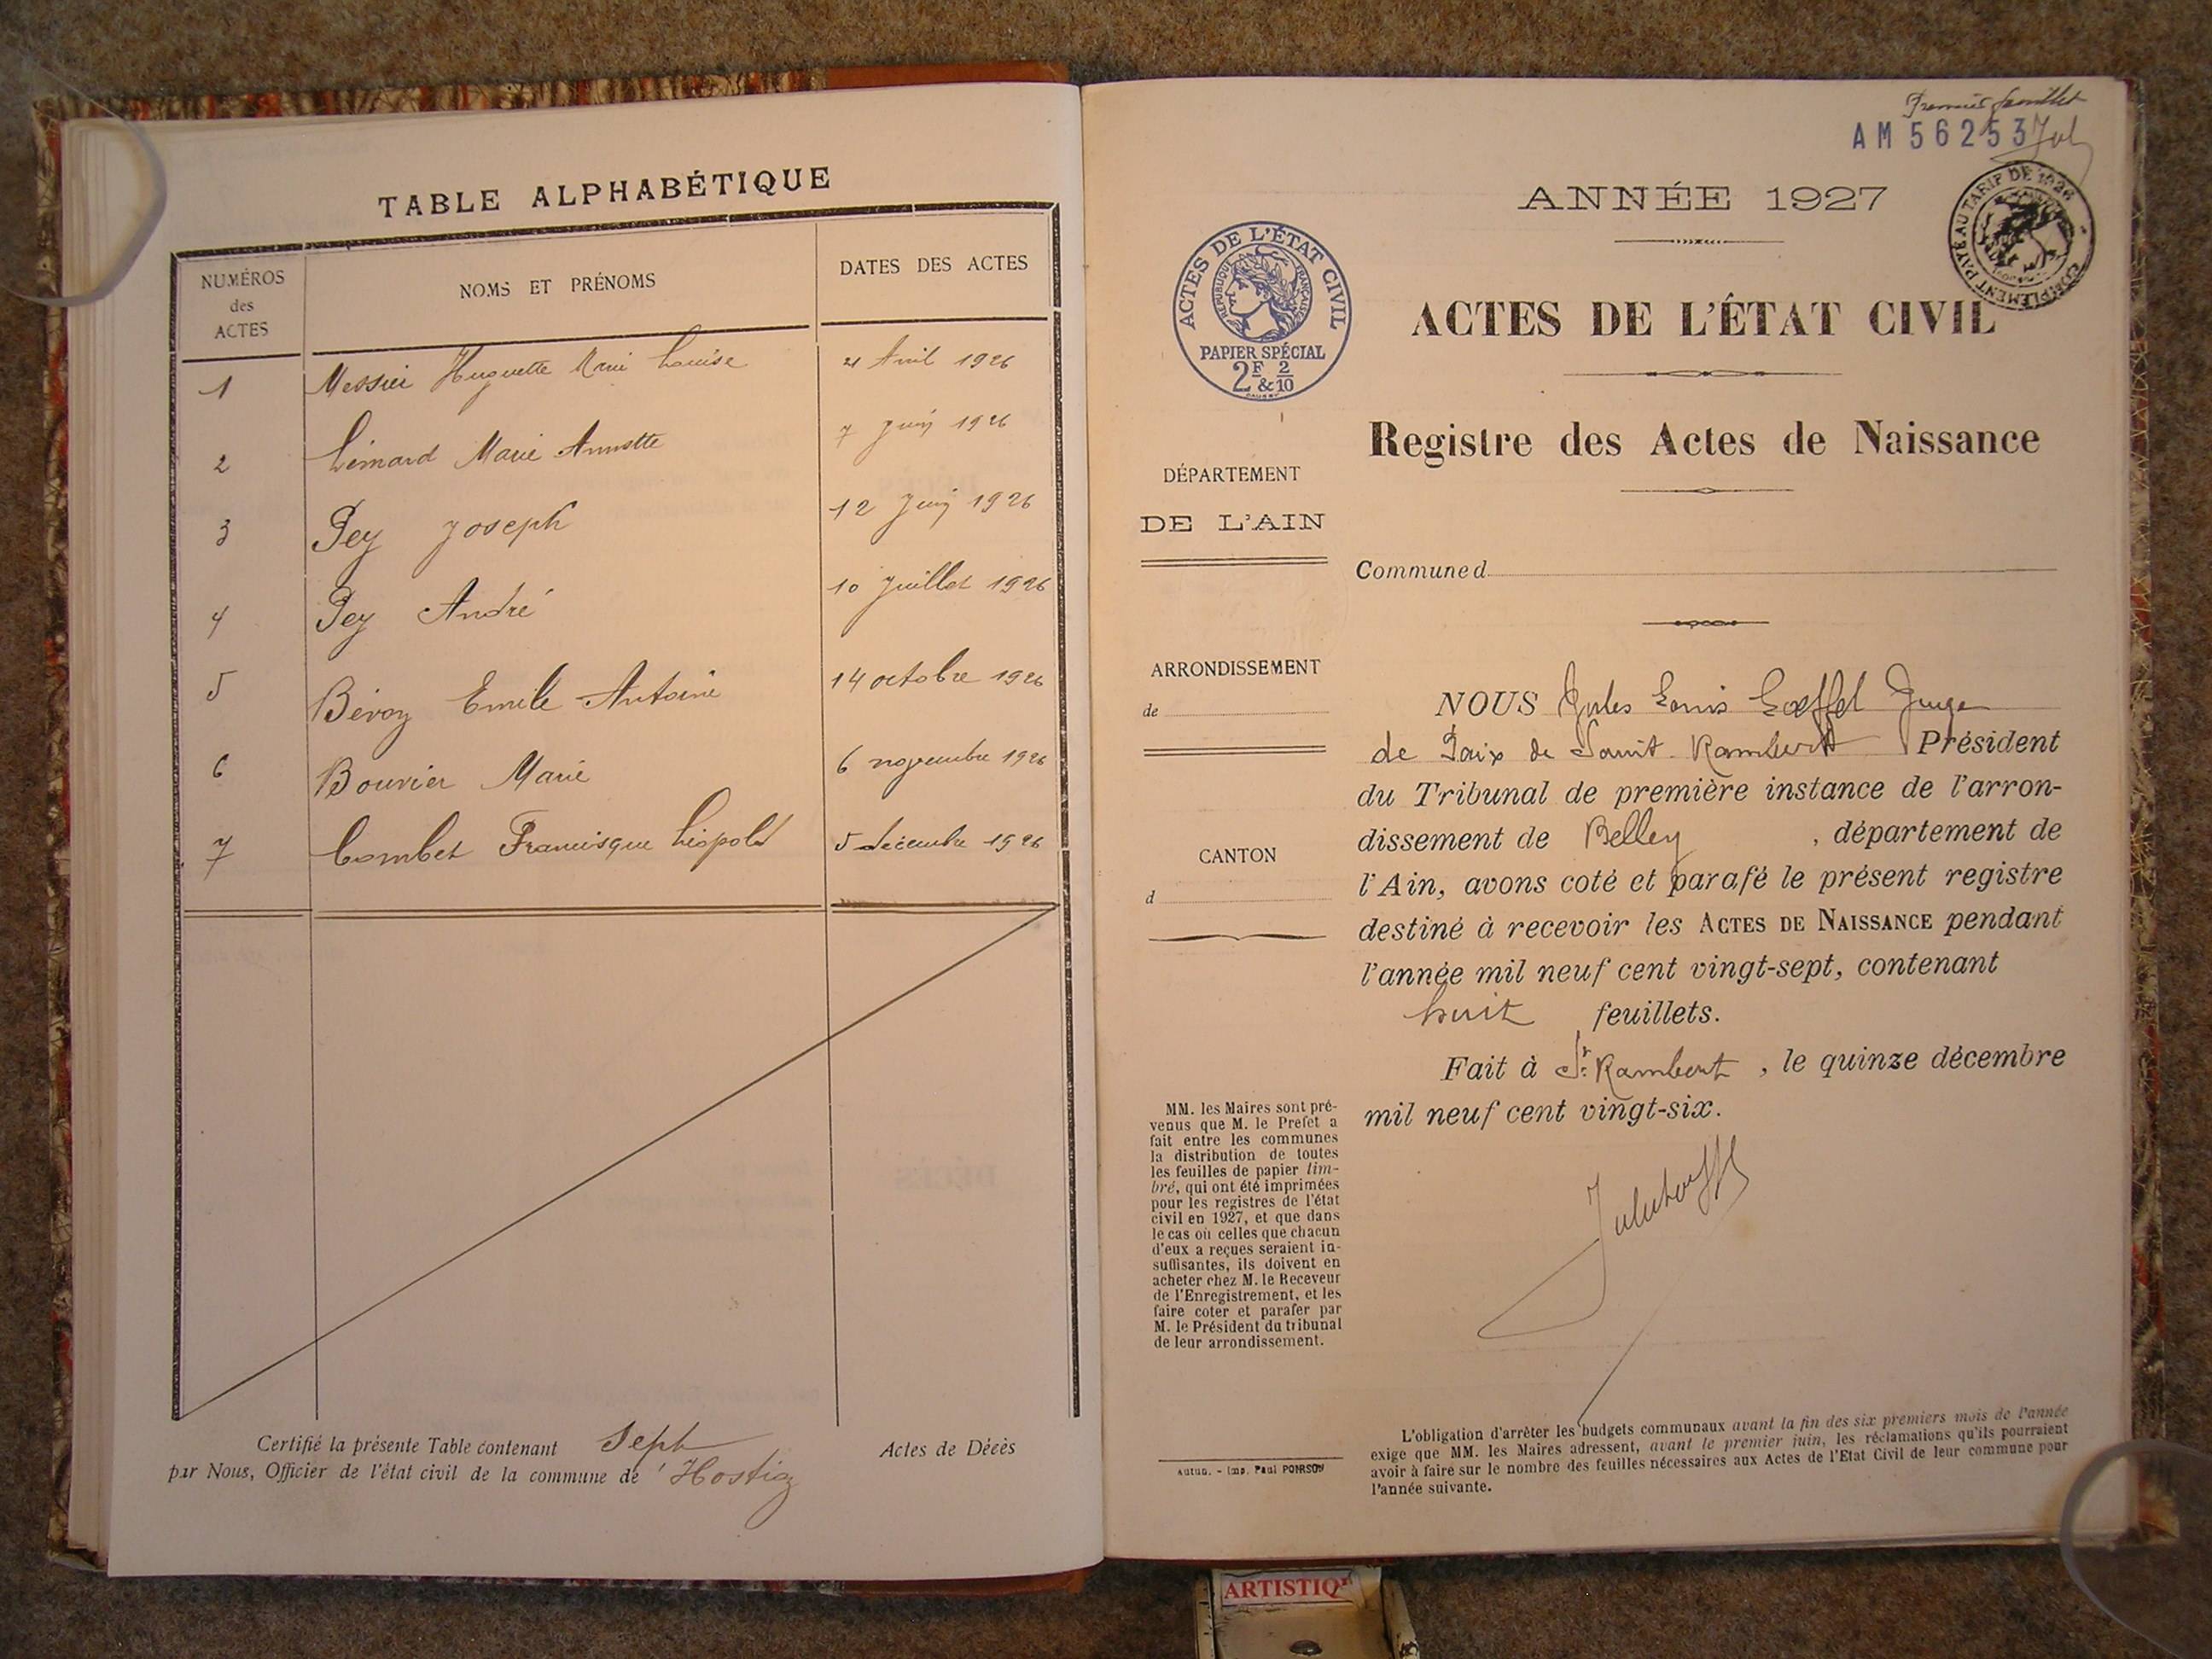 TABLE ALPHABÉTIQUE
NUMÉROS des ACTES
NOMS ET PRÉNOMS
DATES DES ACTES
1 Messier Huguette Marie Louise
2 Lémard Marie 7 Juin 1926
3 Pey Joseph 12 Juin 1926
4 Pey André 10 Juillet 1926
5 Emile Antoine 14 octobre 1926
6 Bouvier Marie 6 novembre 1926
7 Combet Francisque Léopold 5 décembre 1926
Certifié la présente Table contenant Sept Actes de Décès
par Nous, Officier de l'état civil de la commune de Hostiaz
Premier feuillet
AM 56253
ANNÉE 1927
PAYÉ AU TARIF DE 1926
COMPLÉMENT
ACTES DE L'ÉTAT CIVIL
RÉPUBLIQUE FRANÇAISE
PAPIER SPÉCIAL
2F & 2/10
ACTES DE L'ÉTAT CIVIL
Registre des Actes de Naissance
DÉPARTEMENT
DE L'AIN
Commune d
ARRONDISSEMENT
de
CANTON
d
NOUS Jules Louis Loeffel Juge
de Paix de Saint-Rambert Président
du Tribunal de première instance de l'arron-
dissement de Belley , département de
l'Ain, avons coté et parafé le présent registre
destiné à recevoir les ACTES DE NAISSANCE pendant
l'année mil neuf cent vingt-sept, contenant
huit feuillets.
Fait à St Rambert , le quinze décembre
mil neuf cent vingt-six.
MM. les Maires sont pré-
venus que M. le Préfet a
fait entre les communes
la distribution de toutes
les feuilles de papier tim-
bré, qui ont été imprimées
pour les registres de l'état
civil en 1927, et que dans
le cas où celles que chacun
d'eux a reçues seraient in-
suffisantes, ils doivent en
acheter chez M. le Receveur
de l'Enregistrement, et les
faire coter et parafer par
M. le Président du tribunal
de leur arrondissement.
Autun. - Imp. Paul POIRSON
L'obligation d'arrêter les budgets communaux avant la fin des six premiers mois de l'année
exige que MM. les Maires adressent, avant le premier juin, les réclamations qu'ils pourraient
avoir à faire sur le nombre des feuilles nécessaires aux Actes de l'Etat Civil de leur commune pour
l'année suivante.
ARTISTIQ